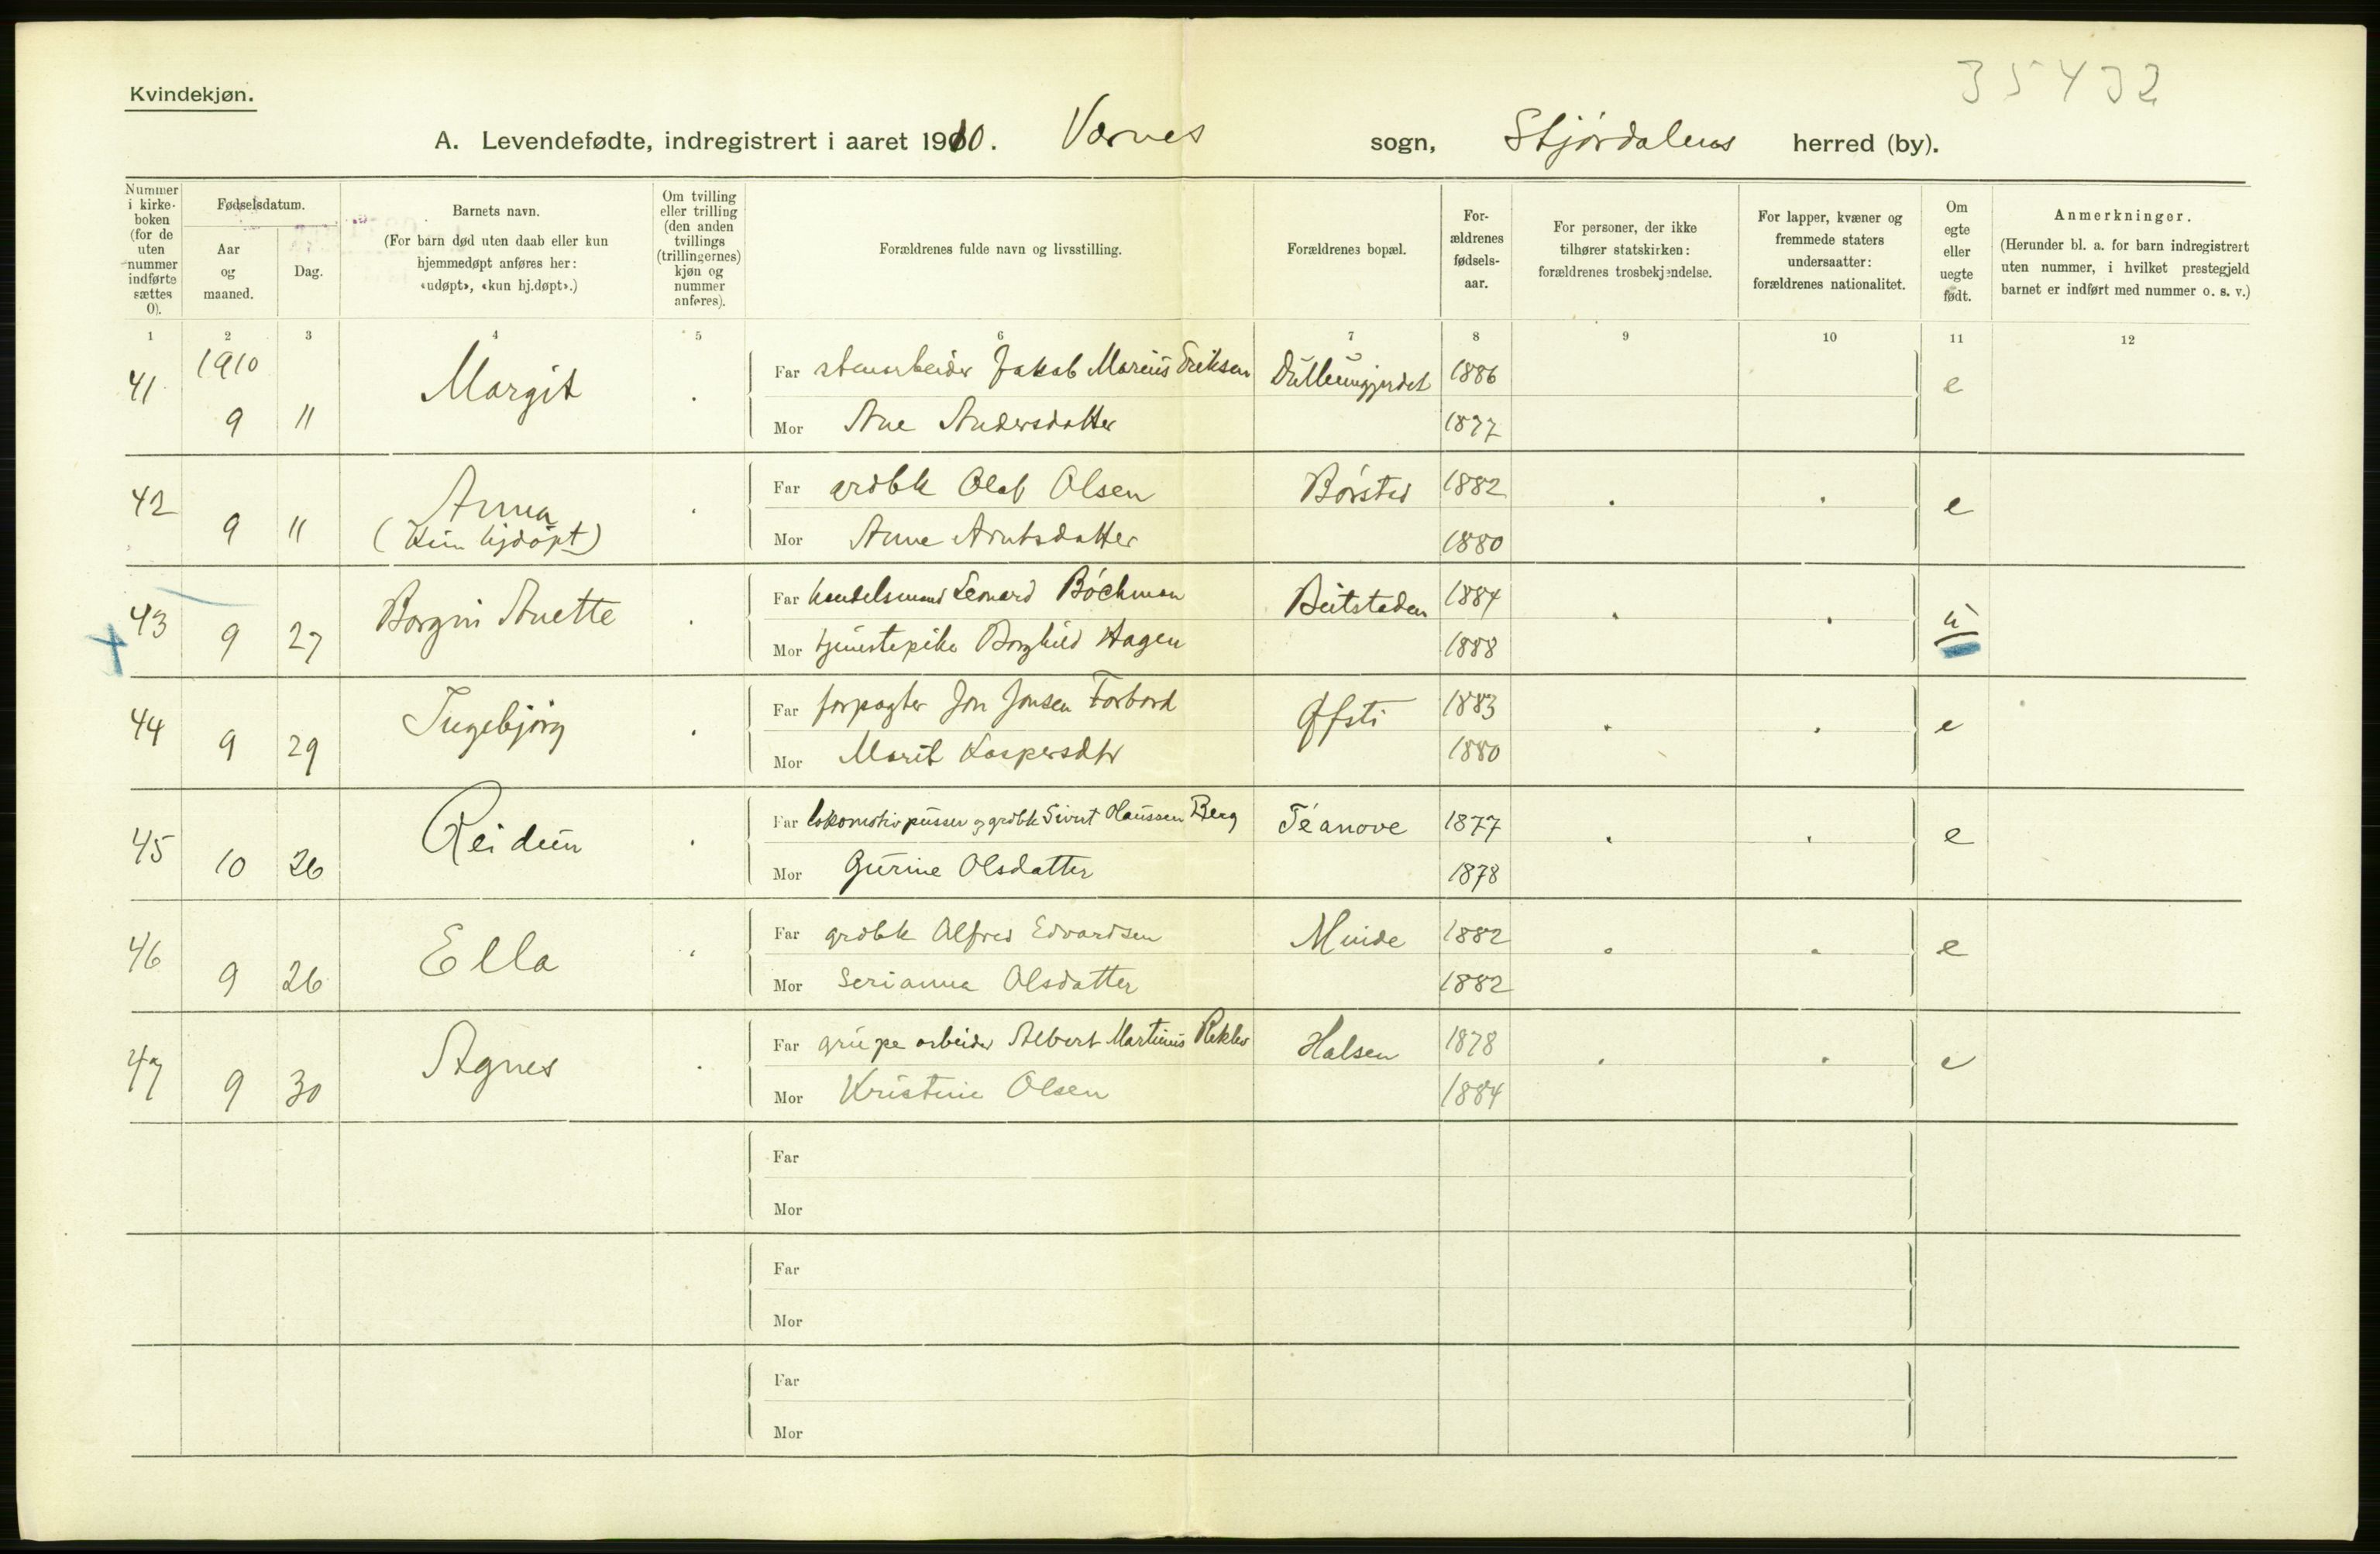 35432
Kvindekjøn.
A. Levendefødte, indregistrert i aaret 1910. Værnes sogn, Stjørdalens herred (by).
Nummer i kirke-boken (for de uten nummer indførte sættes 0).
Fødselsdatum.
Aar og maaned.
Dag.
Barnets navn.
(For barn død uten daab eller kun hjemmedøpt anføres her: «udøpt», «kun hj.døpt».)
Om tvilling eller trilling (den anden tvillings (trillingernes) kjøn og nummer anføres).
Forældrenes fulde navn og livsstilling.
Forældrenes bopæl.
For-ældrenes fødsels-aar.
For personer, der ikke tilhører statskirken: forældrenes trosbekjendelse.
For lapper, kvæner og fremmede staters undersaatter: forældrenes nationalitet.
Om egte eller uegte født.
Anmerkninger.
(Herunder bl. a. for barn indregistrert uten nummer, i hvilket prestegjeld barnet er indført med nummer o. s. v.)
1 2 3 4 5 6 7 8 9 10 11 12
41 1910 9 11 Margit Far stenarbeider Jakob Marius Eriksen 1886 e
Mor Ane Andersdatter 1877
42 9 11 Anna Far grdbk Olaf Olsen Børsted 1882 e
(Kun hjdøpt) Mor Anne Arntsdatter 1880
43 9 27 Borgni Anette Far handelsmand Leonard Böckman Beitstaden 1884 u
Mor tjenestepike Borghild Hagen 1888
44 9 29 Ingebjørg Far forpagter Jon Jonsen Forbord Øfsti 1883 e
Mor Marit Kaspersdtr 1880
45 10 26 Reidun Far lokomotivpusser og grdbk Sivert Hanssen Berg 1877 e
Mor Gurine Olsdatter 1878
46 9 26 Ella Far grdbk Alfred Edvardsen Minde 1882 e
Mor Serianna Olsdatter 1882
47 9 30 Agnes Far grupearbeider Albert Martinus Halsen 1878 e
Mor Kristine Olsen 1884
Far
Mor
Far
Mor
Far
Mor